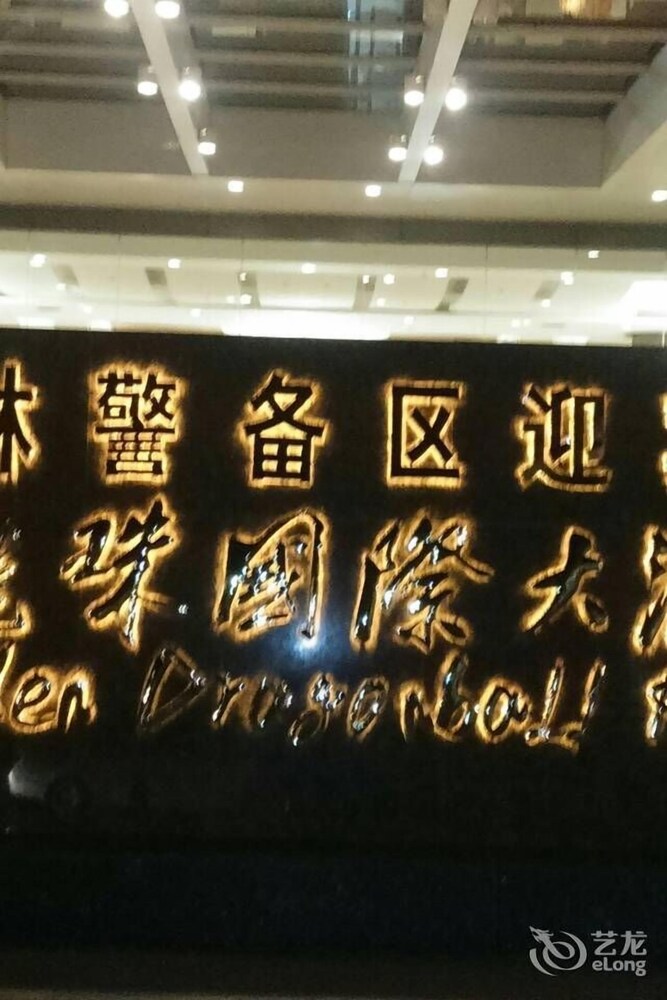 林警备区迎
珠國際大酒
den Dragonball
艺龙
eLong